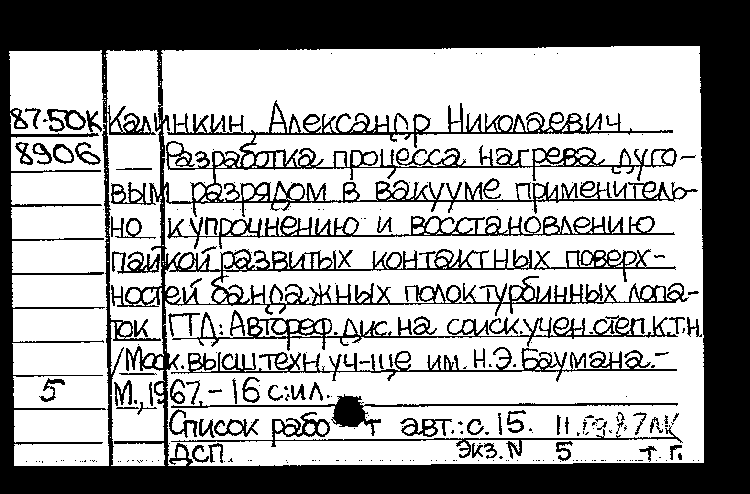 87-50К Калинкин, Александр Николаевич.
8906 Разработка процесса нагрева дуго-
вым разрядом в вакууме применитель-
но к упрочнению и восстановлению
пайкой развитых контактных поверх-
ностей бандажных полок турбинных лопа-
ток ГТД: Автореф. дис. на соиск. учен. степ. к.т.н
/Моск. высш. техн. уч-ще им. Н.Э. Баумана.-
5 М., 1967. - 16 с: ил.
Список работ авт.: с. 15.
ДСП. Экз. N 5 т г.